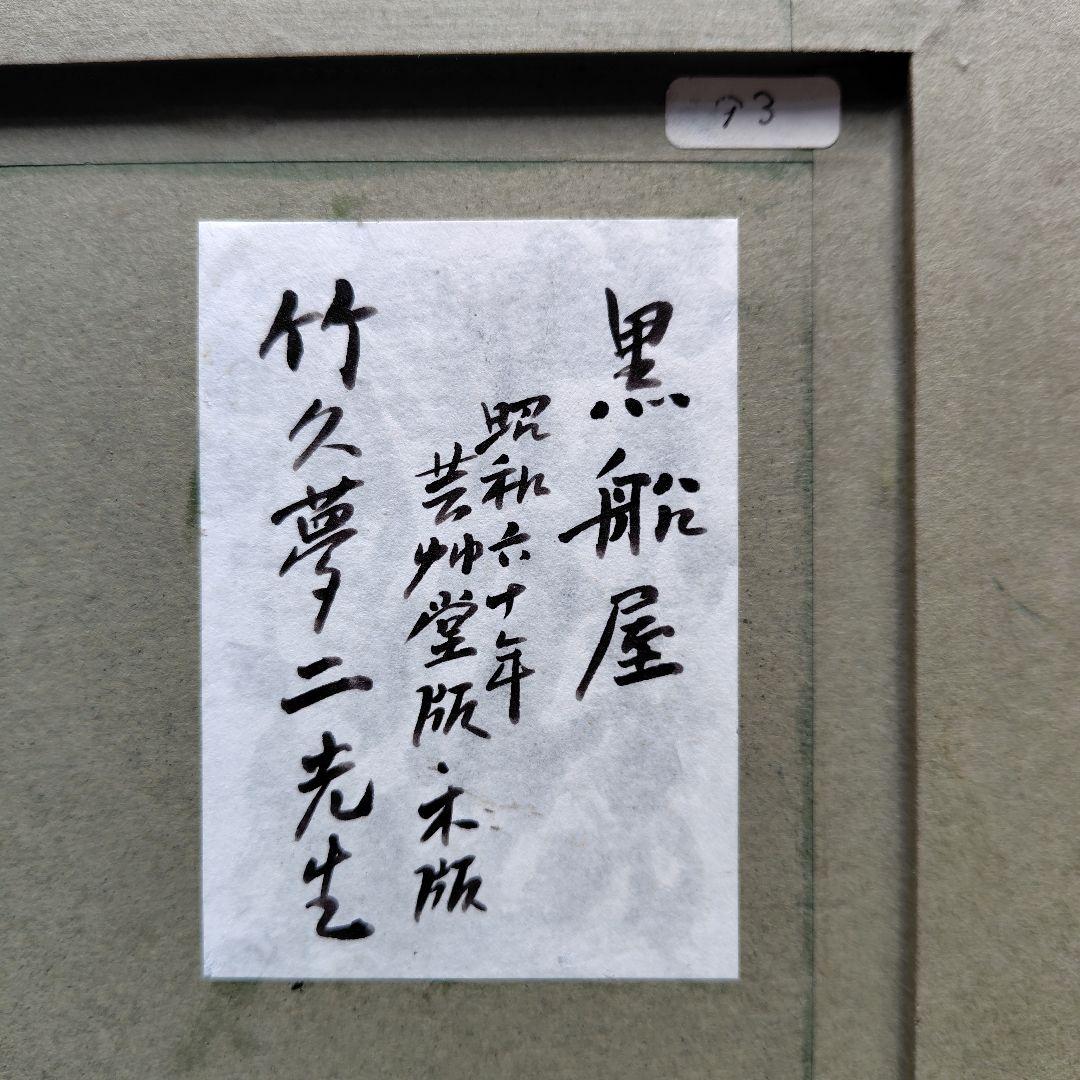 黒船屋
昭和六十年
芸艸堂版木版
竹久夢二先生